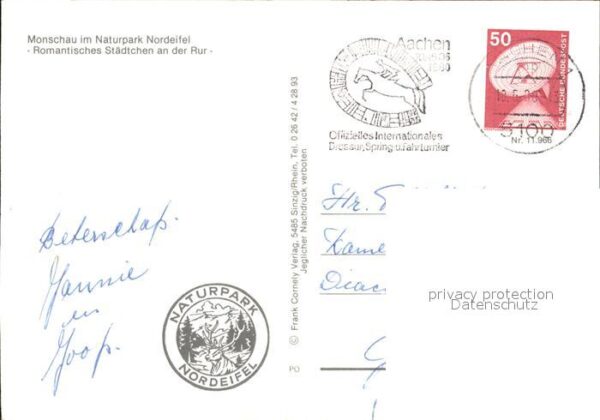 Monschau im Naturpark Nordeifel
- Romantisches Städtchen an der Rur -
Aachen
Offizielles Internationales
Dressur, Spring- u. Fahrturnier
50
DEUTSCHE BUNDESPOST
5100
Nr. 11.966
© Frank Cornely Verlag, 5485 Sinzig/Rhein, Tel. 0 26 42 / 4 28 93
Jeglicher Nachdruck verboten
Beterschap.
Jannie
en
Joop.
NATURPARK
NORDEIFEL
PO
Hr.
Kame
Diac
privacy protection
Datenschutz